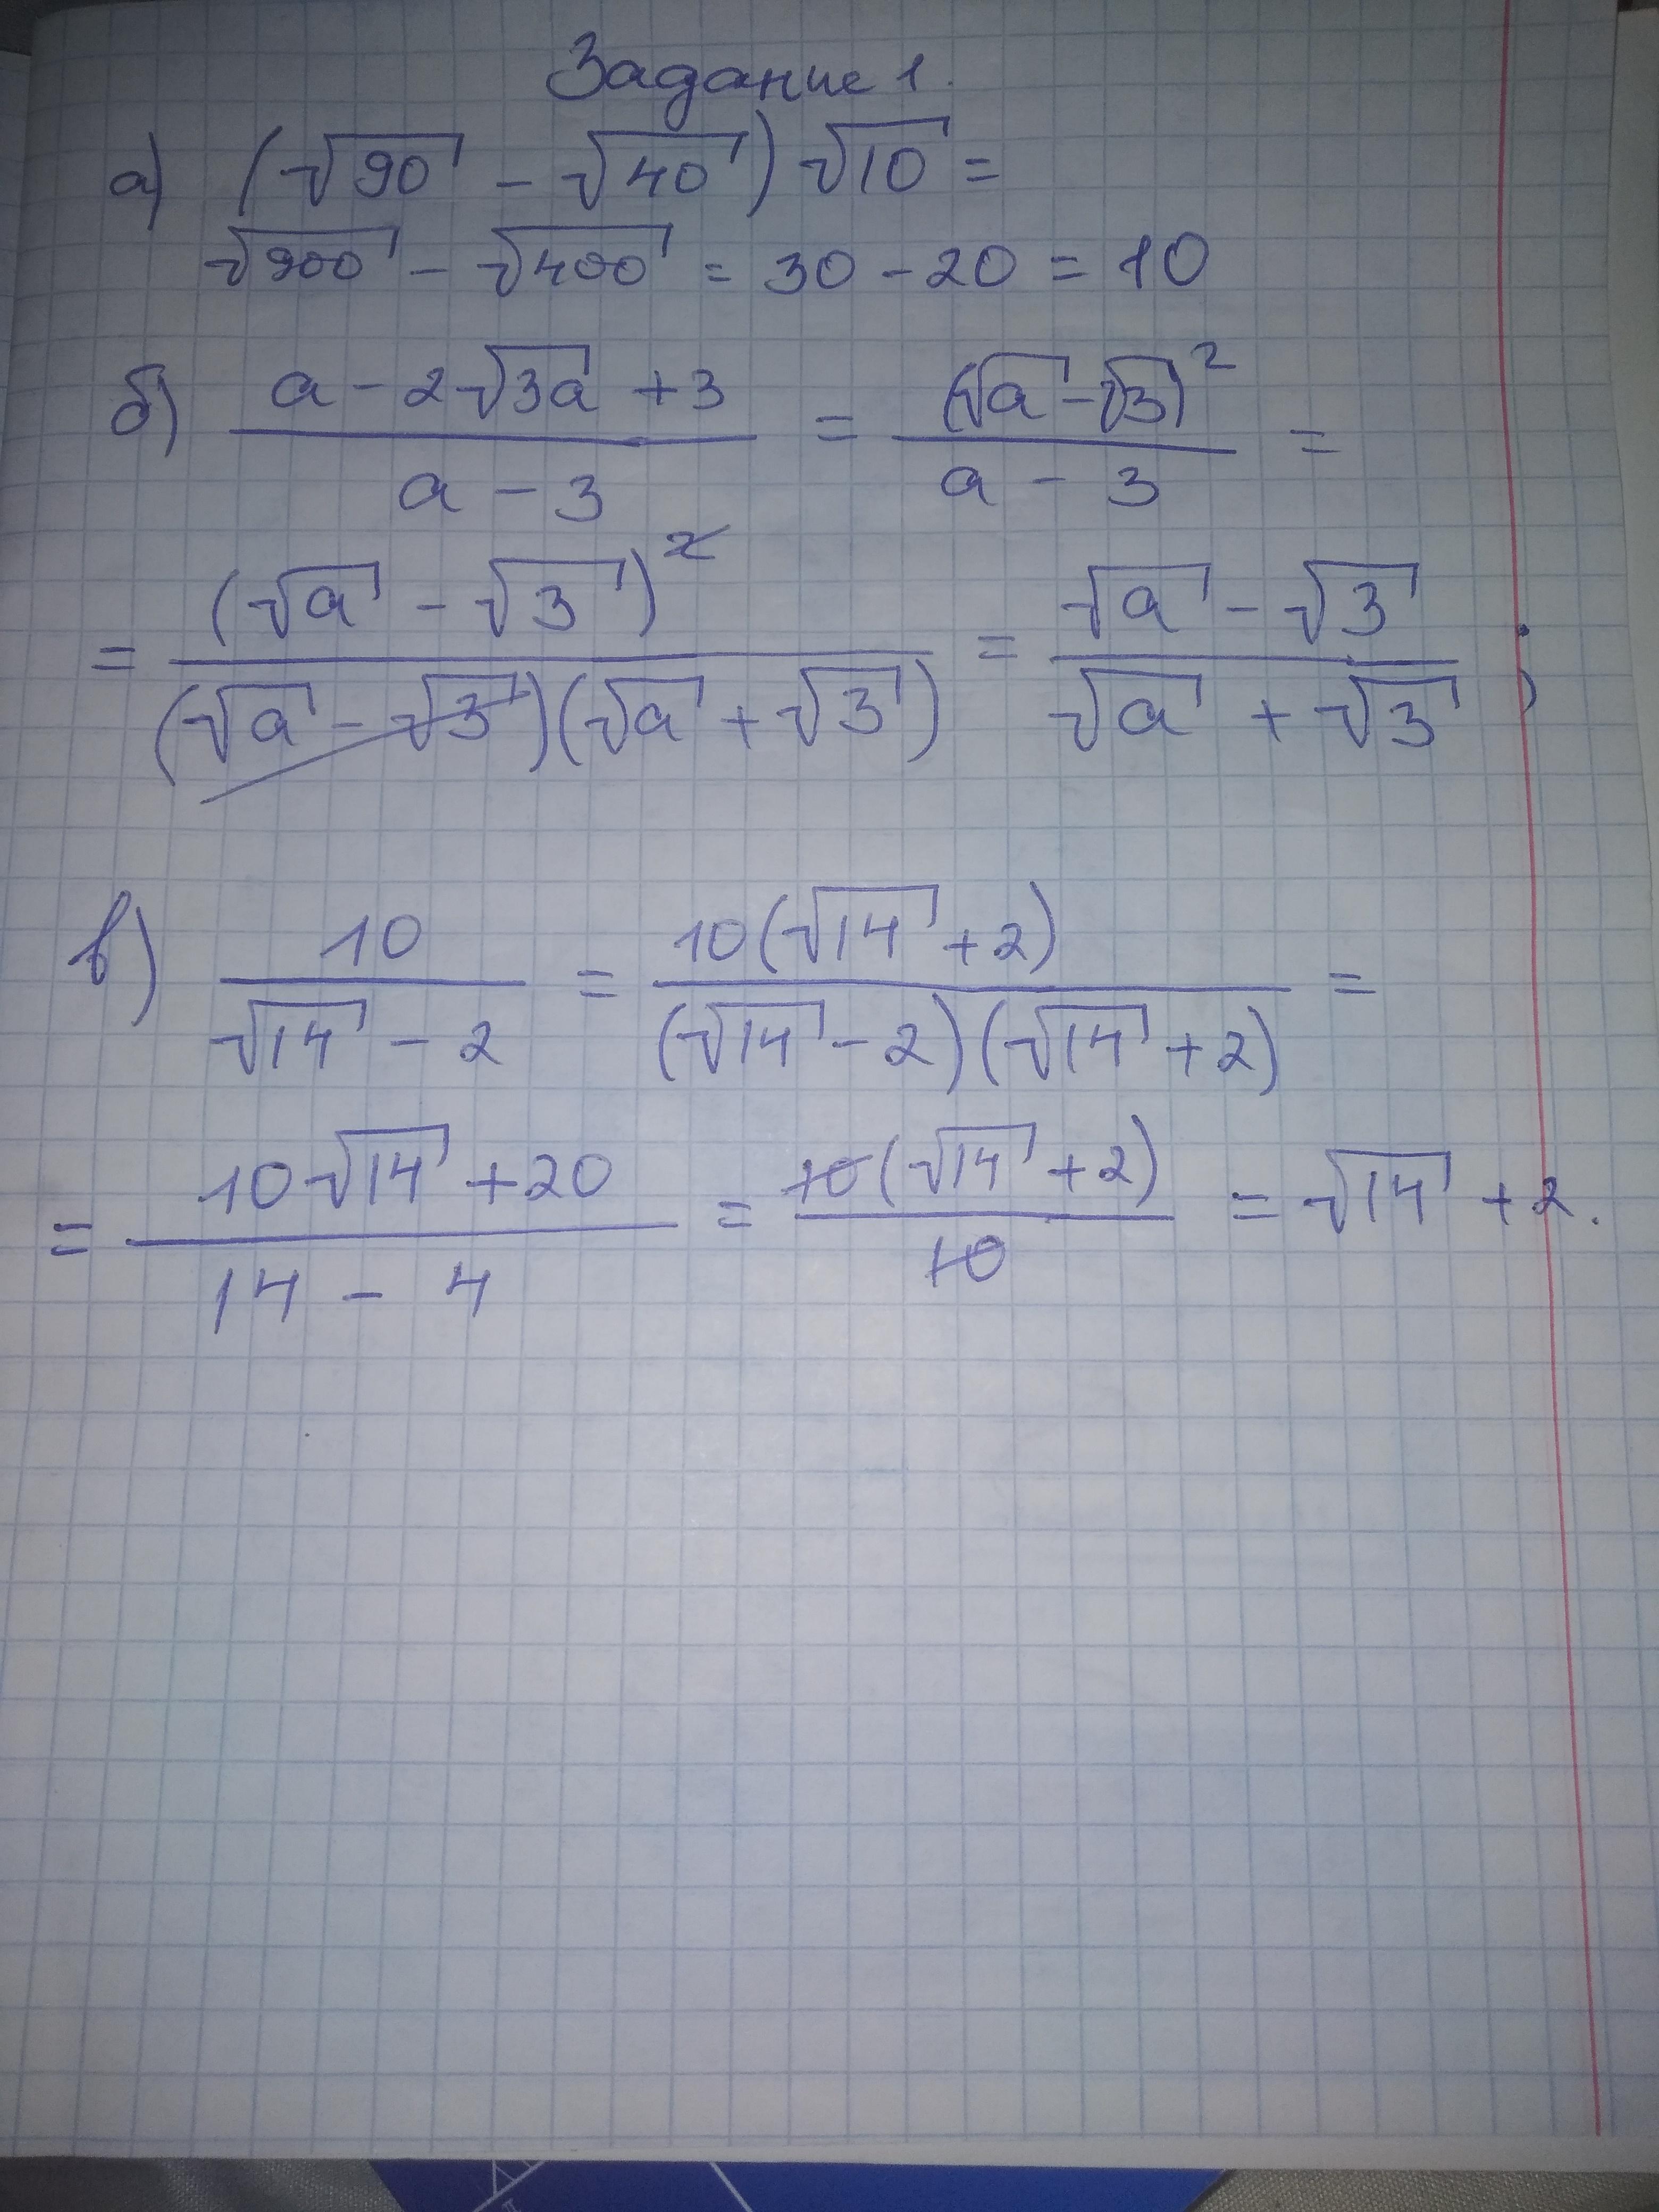 Задание 1.
а) (√90 - √40) √10 =
√900 - √400 = 30 - 20 = 10
б) (a - 2√3a + 3)/(a - 3) = (√a - √3)²/(a - 3) =
= (√a - √3)²/((√a - √3)(√a + √3)) = (√a - √3)/(√a + √3) ;
в) 10/(√14 - 2) = 10(√14 + 2)/((√14 - 2)(√14 + 2)) =
= (10√14 + 20)/(14 - 4) = 10(√14 + 2)/10 = √14 + 2.